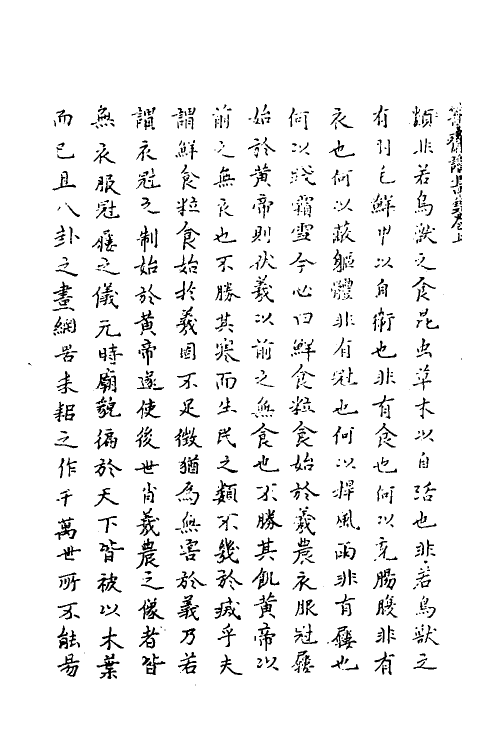 類非若鳥獸之食昆虫草木以自活也非若鳥獸之
有羽毛鮮甲以自衛也非有食也何以充腸腹非有
衣也何以蔽軀體非有冠也何以捍風雨非有屨也
何以踐霜雪今必曰鮮食粒食始於羲農衣服冠屨
始於黄帝則伏羲以前之無食也不勝其飢黄帝以
前之無衣也不勝其寒而生民之類不幾於滅乎夫
謂鮮食粒食始於羲固不足徴猶為無害於義乃若
謂衣冠之制始於黄帝遂使後世肖羲農之像者皆
無衣服冠屨之儀元時廟貌徧於天下皆被以木葉
而已且八卦之畫網罟耒耜之作千萬世所不能易